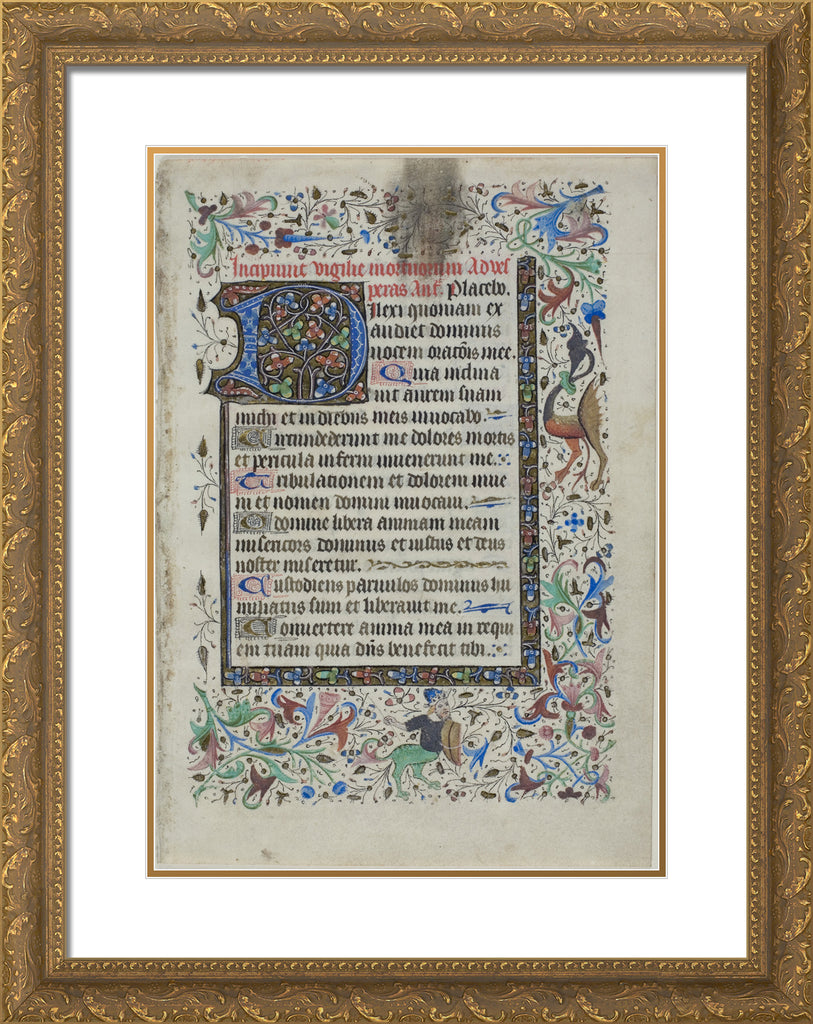 Incipiunt vigilie mortuorum Ad ves
peras Ant. Placebo.
Dilexi quoniam ex
audiet dominus
vocem oratōis mee.
Quia inclina
vit aurem suam
michi et in diebus meis invocabo
Circumdederunt me dolores mortis
et pericula inferni invenerunt me.
Tribulationem et dolorem inve
ni et nomen domini invocavi.
O domine libera animam meam
misericors dominus et iustus et deus
noster miseretur.
Custodiens parvulos dominus hu
miliatus sum et liberavit me.
Convertere anima mea in requi
em tuam quia dn̄s benefecit tibi.